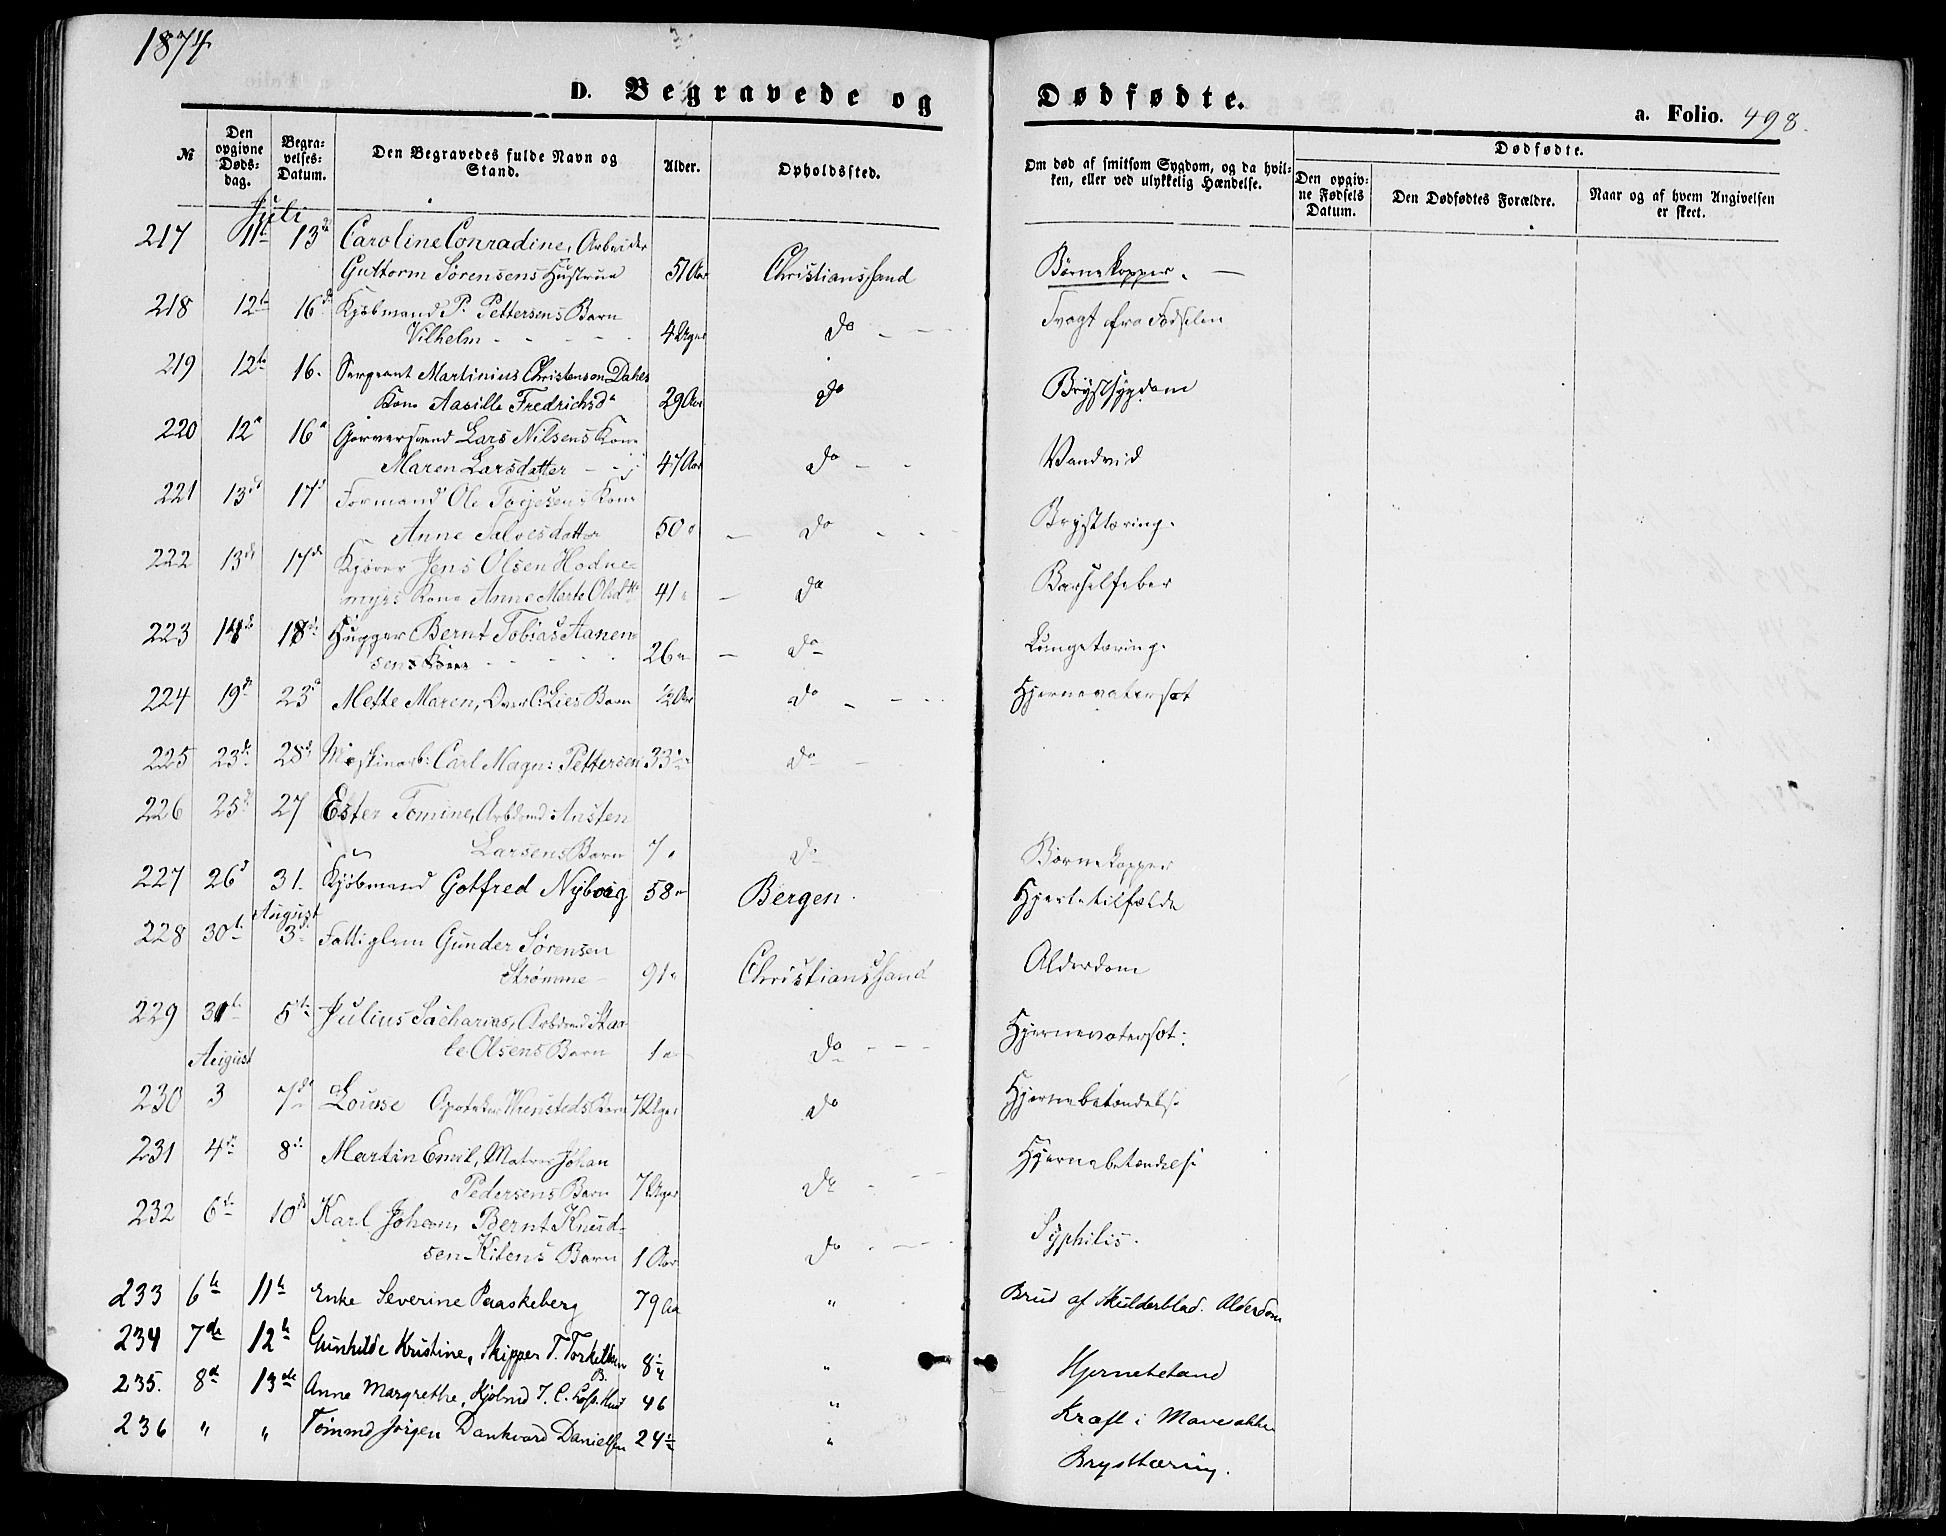 1874
D. Begravede og Dødfødte.
a. Folio. 498.
№ Den opgivne Døds-dag. Begra-velses-Datum. Den Begravedes fulde Navn og Stand. Alder. Opholdssted. Om død af smitsom Sygdom, og da hvil-ken, eller ved ulykkelig Hændelse. Dødfødte.
Den opgiv-ne Fødsels Datum. Den Dødfødtes Forældre. Naar og af hvem Angivelsen er skeet.
Juli
217 11te 13de Caroline Conradine, Arbeider
Guttorm Sørensens Hustrue 51 Aar Christianssand Børnekopper. —
218 12te 16de Kjøbmand P. Pettersens Barn
Vilhelm - - - - 4 Uger do - - Svagt fra Fødselen
219 12te 16. Sergeant Martinius Christenson Dahls
Kone Aasille Fredrichsd. 29 Aar do Brystsygdom
220 12te 16de Garversvend Lars Nilsens Kone
Maren Larsdatter - - 47 Aar do - - Vandvid
221 13de 17de Formand Ole Torjesens Kone
Anne Salvesdatter 50 " — do - - Brysttæring.
222 13de 17de Kjører Jens Olsen Hodne-
myrs Kone Anne Marte Olsdtr 41 " — do Barselfeber
223 14de 18de Hugger Bernt Tobias Aanen-
sens Kone - - - 26 " — do Lungetæring.
224 19de 23de Mette Maren, Lies Barn ½ Aar do - - - Hjernevatersot
225 23de 28de Maskinarb: Carl Magn: Pettersen 33 " do -
226 25de 27 Ester Tomine, Arbdmd Austen
Larsens Barn 7 " do Børnekopper
227 26de 31. Kjøbmand Gotfred Nyborg 58 " Bergen. Hjertetilfælde
August
228 30te 3de Fattiglem Gunder Sørensen
Strømme - 91 " Christianssand Alderdom
229 31te 5te Julius Sacharias, Arbdmd
Olsens Barn 1 " do - - - Hjernevatersot.
August
230 3 7de Louise Apoteker Barn 7 Uger do Hjernebetændelse
231 4de 8de Martin Emil, Matros Johan
Pedersens Barn 7 Uger do - - Hjernebetændelse
232 6te 10de Karl Johan, Bernt Knud-
sen Kilens Barn 1 Aar do - - - Syphilis.
233 6te 11te Enke Severine Paaskeberg 79 Aar " Brud af Skulderblad. Alderdom
234 7de 12te Gunhilde Kristine, Skipper T. Torkelsen
B. 8 ½ " Hjernebetænd
235. 8de 13de Anne Margrethe, Kjøbmd J. C. Hust 46 " Kræft i Mavesækken
236 " " Tømmd Jørgen Dankvard Danielsen 24 ½ " Brysttæring.